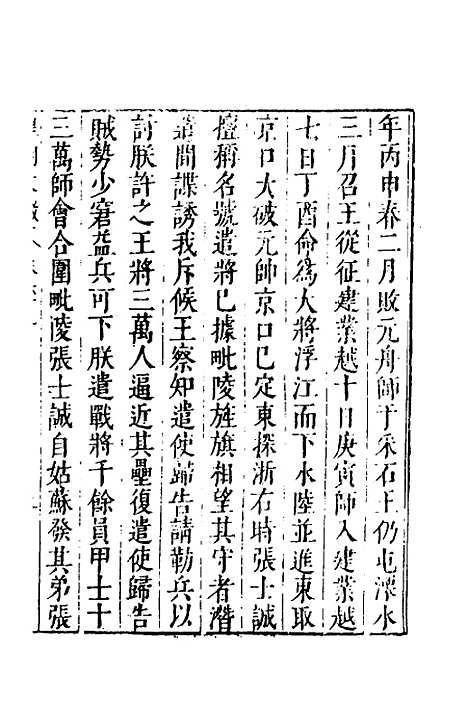 年丙申春二月敗元舟師于采石王仍屯溧水
三月召王從征建業越十日庚寅師入建業越
七日丁酉命爲大將浮江而下水陸並進東取
京口大破元帥京口已定東探浙右時張士誠
擅稱名號遣將已據毗陵旌旗相望其守者潛
遣間諜誘我斥候王察知遣使歸告請勒兵以
討朕許之王將三萬人逼近其壘復遣使歸告
賊勢少窘益兵可下朕遣戰將千餘員甲士十
三萬師會合圍毗陵張士誠自姑蘇發其弟張